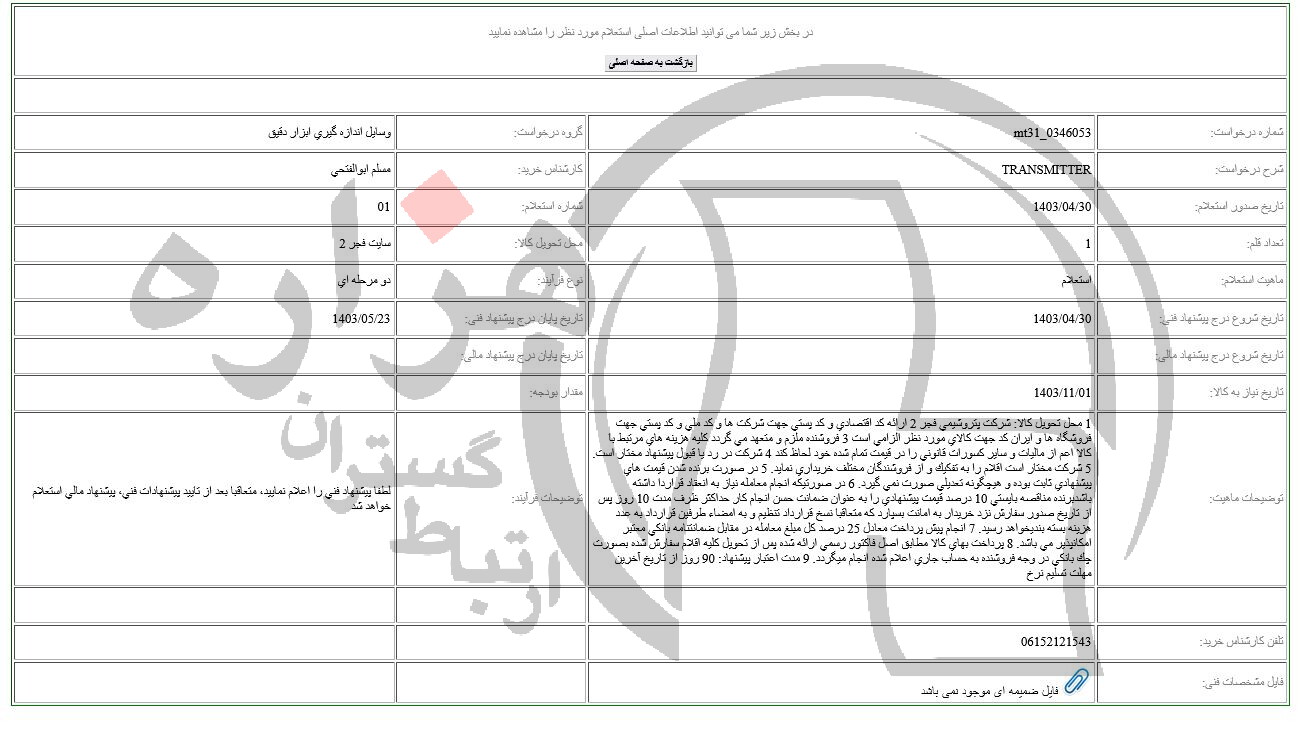 در بخش زیر شما می توانید اطلاعات اصلی استعلام مورد نظر را مشاهده نمایید
بازگشت به صفحه اصلی
شماره درخواست: mt31_0346053 گروه درخواست: وسايل اندازه گيري ابزار دقيق
شرح درخواست: TRANSMITTER کارشناس خرید: مسلم ابوالفتحي
تاریخ صدور استعلام: 1403/04/30 شماره استعلام: 01
تعداد قلم: 1 محل تحویل کالا: سايت فجر 2
ماهیت استعلام: استعلام نوع فرآیند: دو مرحله اي
تاریخ شروع درج پیشنهاد فنی: 1403/04/30 تاریخ پایان درج پیشنهاد فنی: 1403/05/23
تاریخ شروع درج پیشنهاد مالی: تاریخ پایان درج پیشنهاد مالی:
تاریخ نیاز به کالا: 1403/11/01 مقدار بودجه:
توضیحات ماهیت:
1 محل تحويل کالا: شرکت پتروشيمي فجر 2 ارائه کد اقتصادي و کد پستي جهت شرکت ها و کد ملي و کد پستي جهت
فروشگاه ها و ايران کد جهت کالاي مورد نظر الزامي است 3 فروشنده ملزم و متعهد مي گردد کليه هزينه هاي مرتبط با
کالا اعم از ماليات و ساير کسورات قانوني را در قيمت تمام شده خود لحاظ کند 4 شرکت در رد يا قبول پيشنهاد مختار است.
5 شرکت مختار است اقلام را به تفکيك و از فروشندگان مختلف خريداري نمايد. 5 در صورت برنده شدن قيمت هاي
پيشنهادي ثابت بوده و هيچگونه تعديلي صورت نمي گيرد. 6 در صورتيکه انجام معامله نياز به انعقاد قراردا داشته
باشدبرنده مناقصه بايستي 10 درصد قيمت پيشنهادي را به عنوان ضمانت حسن انجام کار حداکثر ظرف مدت 10 روز پس
از تاريخ صدور سفارش نزد خريدار به امانت بسپارد که متعاقبا نسخ قرارداد تنظيم و به امضاء طرفين قرارداد به عدد
هزينه بسته بنديخواهد رسيد. 7 انجام پيش پرداخت معادل 25 درصد کل مبلغ معامله در مقابل ضمانتنامه بانکي معتبر
امکانپذير مي باشد. 8 پرداخت بهاي کالا مطابق اصل فاکتور رسمي ارائه شده پس از تحويل کليه اقلام سفارش شده بصورت
چك بانکي در وجه فروشنده به حساب جاري اعلام شده انجام ميگردد. 9 مدت اعتبار پيشنهاد: 90 روز از تاريخ آخرين
مهلت تسليم نرخ
توضیحات فرآیند:
لطفا پيشنهاد فني را اعلام نماييد، متعاقبا بعد از تاييد پيشنهادات فني، پيشنهاد مالي استعلام
خواهد شد
تلفن کارشناس خرید: 06152121543
فایل مشخصات فنی: فایل ضمیمه ای موجود نمی باشد
هزاره
گستران
ارتباط